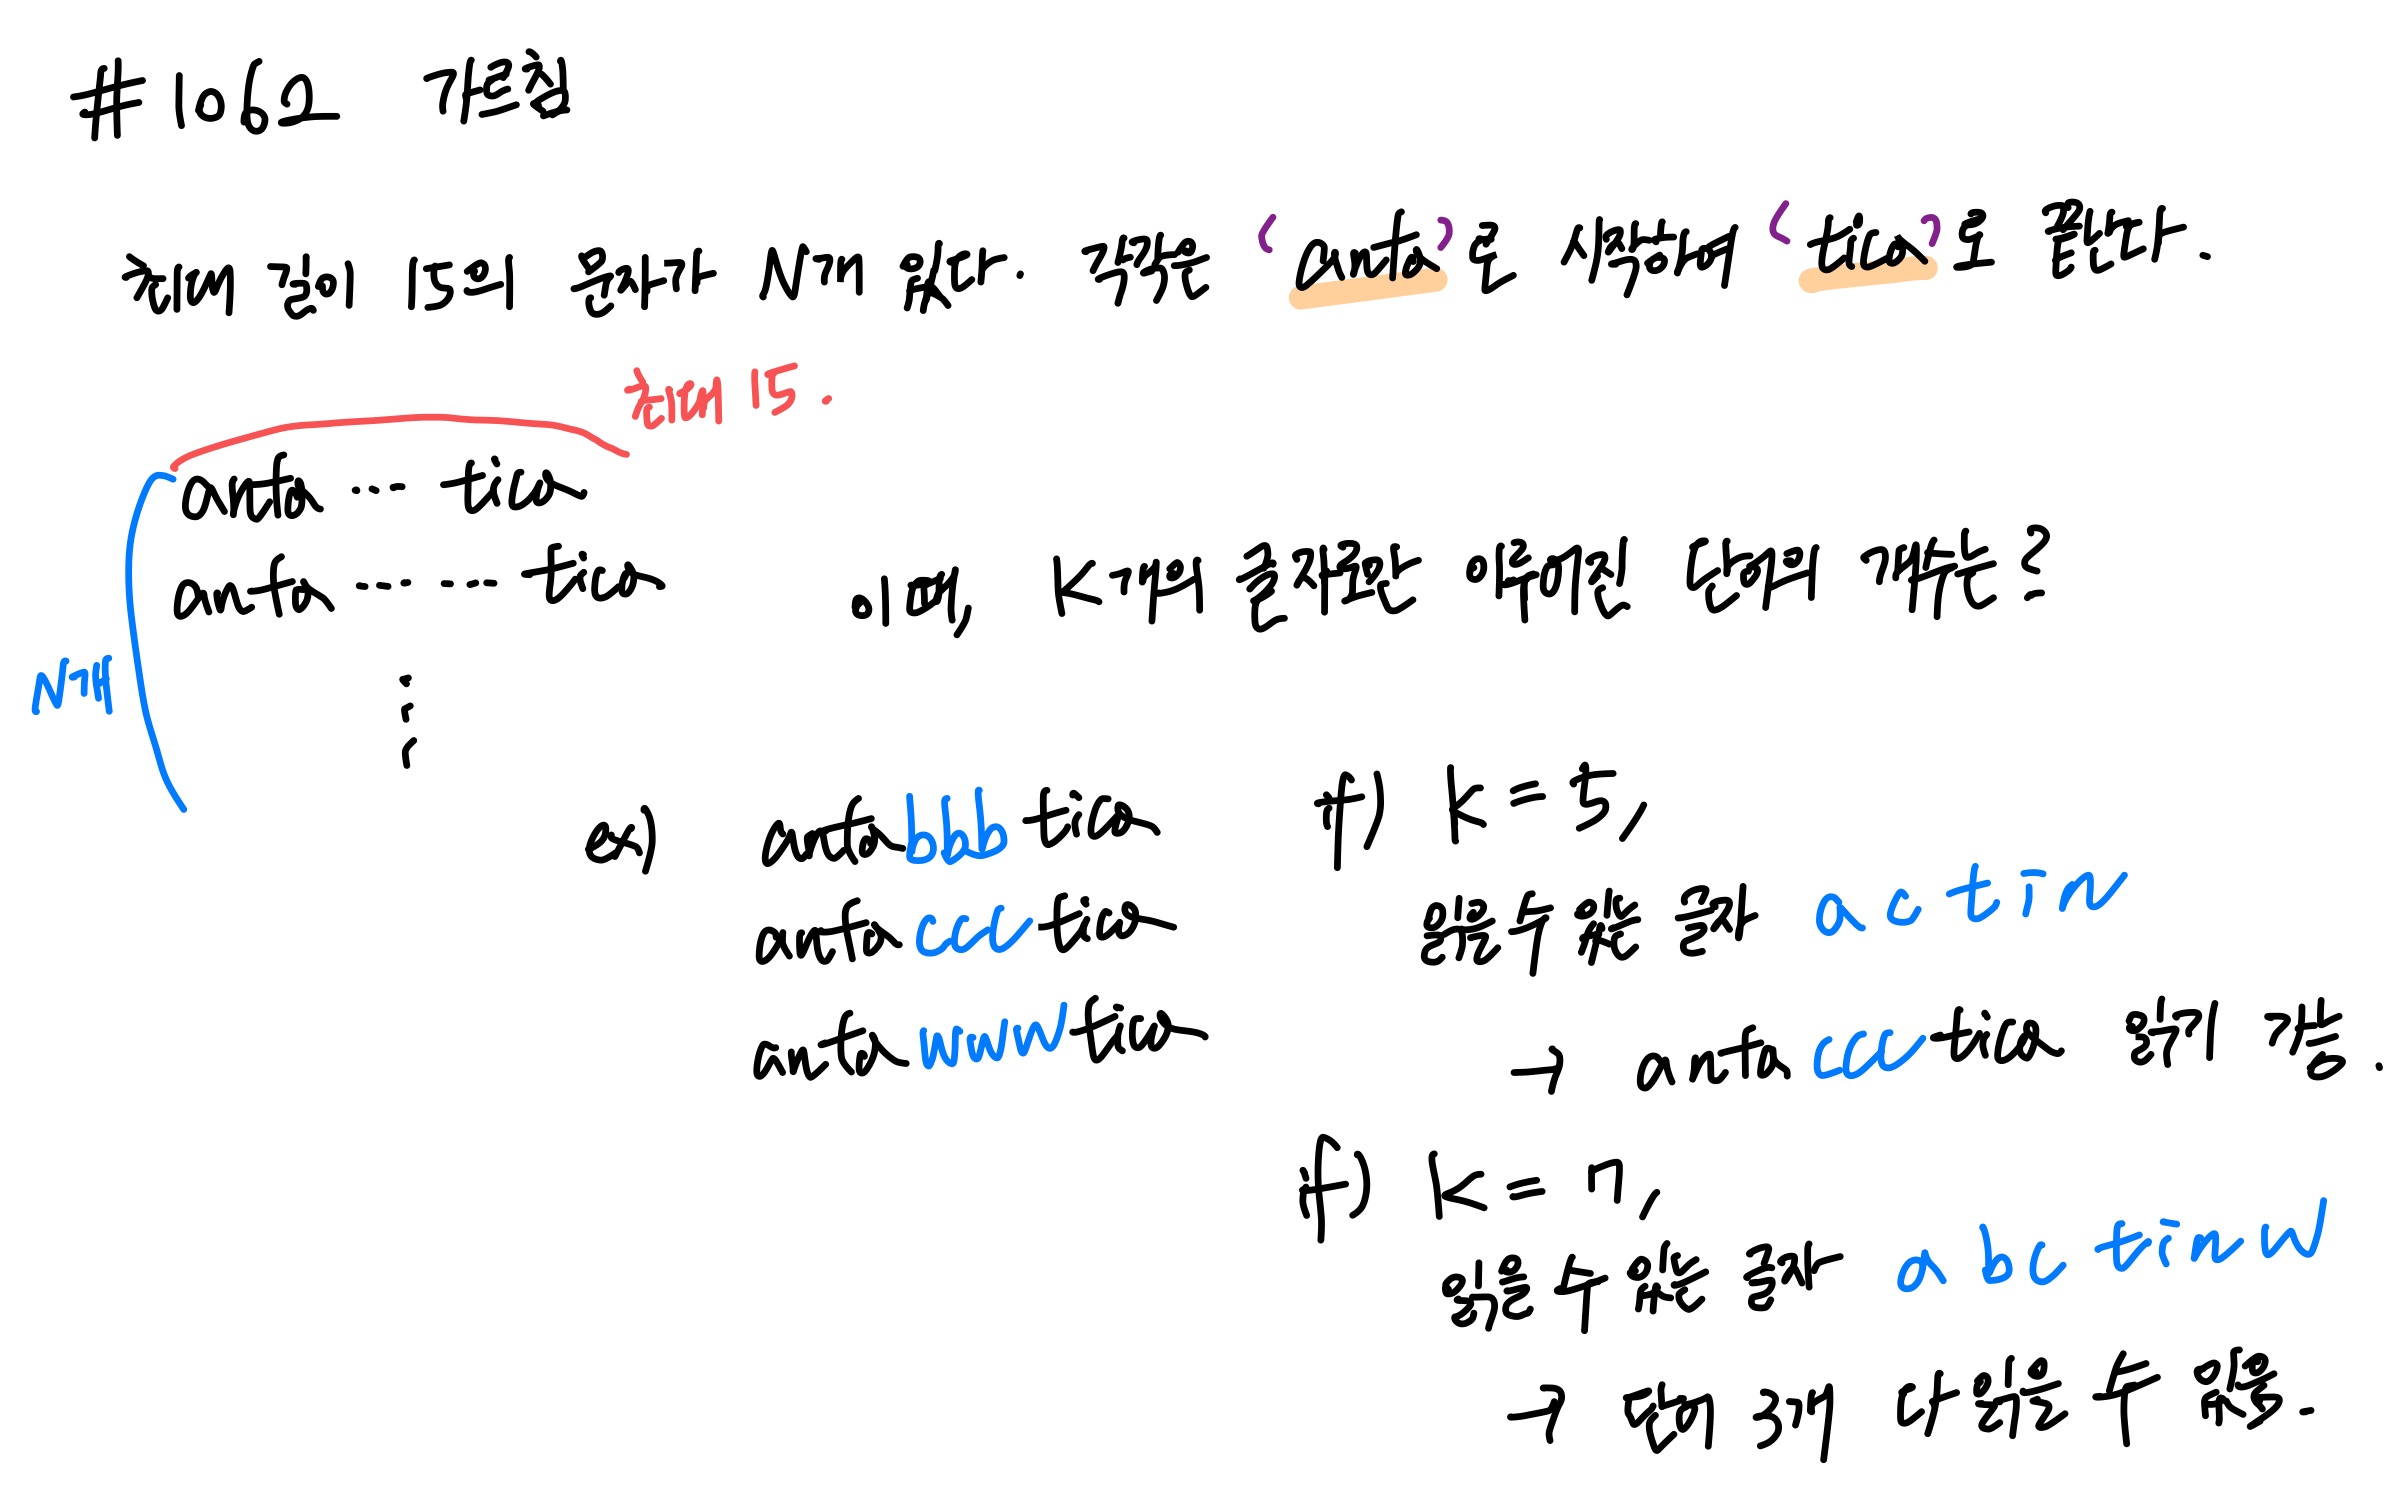 #1062 가르침
최대 길이 15의 문자가 N개 있다. 각각은 'anta'로 시작해서 'tica'로 끝난다.
최대 15.
anta ... tica
anta ... ... tica
N개
이때, K개의 글자로만 이루어진 단어의 개수는?
ex) anta bbb tica
anta ccc tica
anta www tica
if) K = 5,
읽을 수 있는 글자 a c t i n
→ anta cc tica 읽기 가능.
if) K = 7,
읽을 수 있는 글자 a b c t i n w
→ 단어 3개 다 읽을 수 있음.